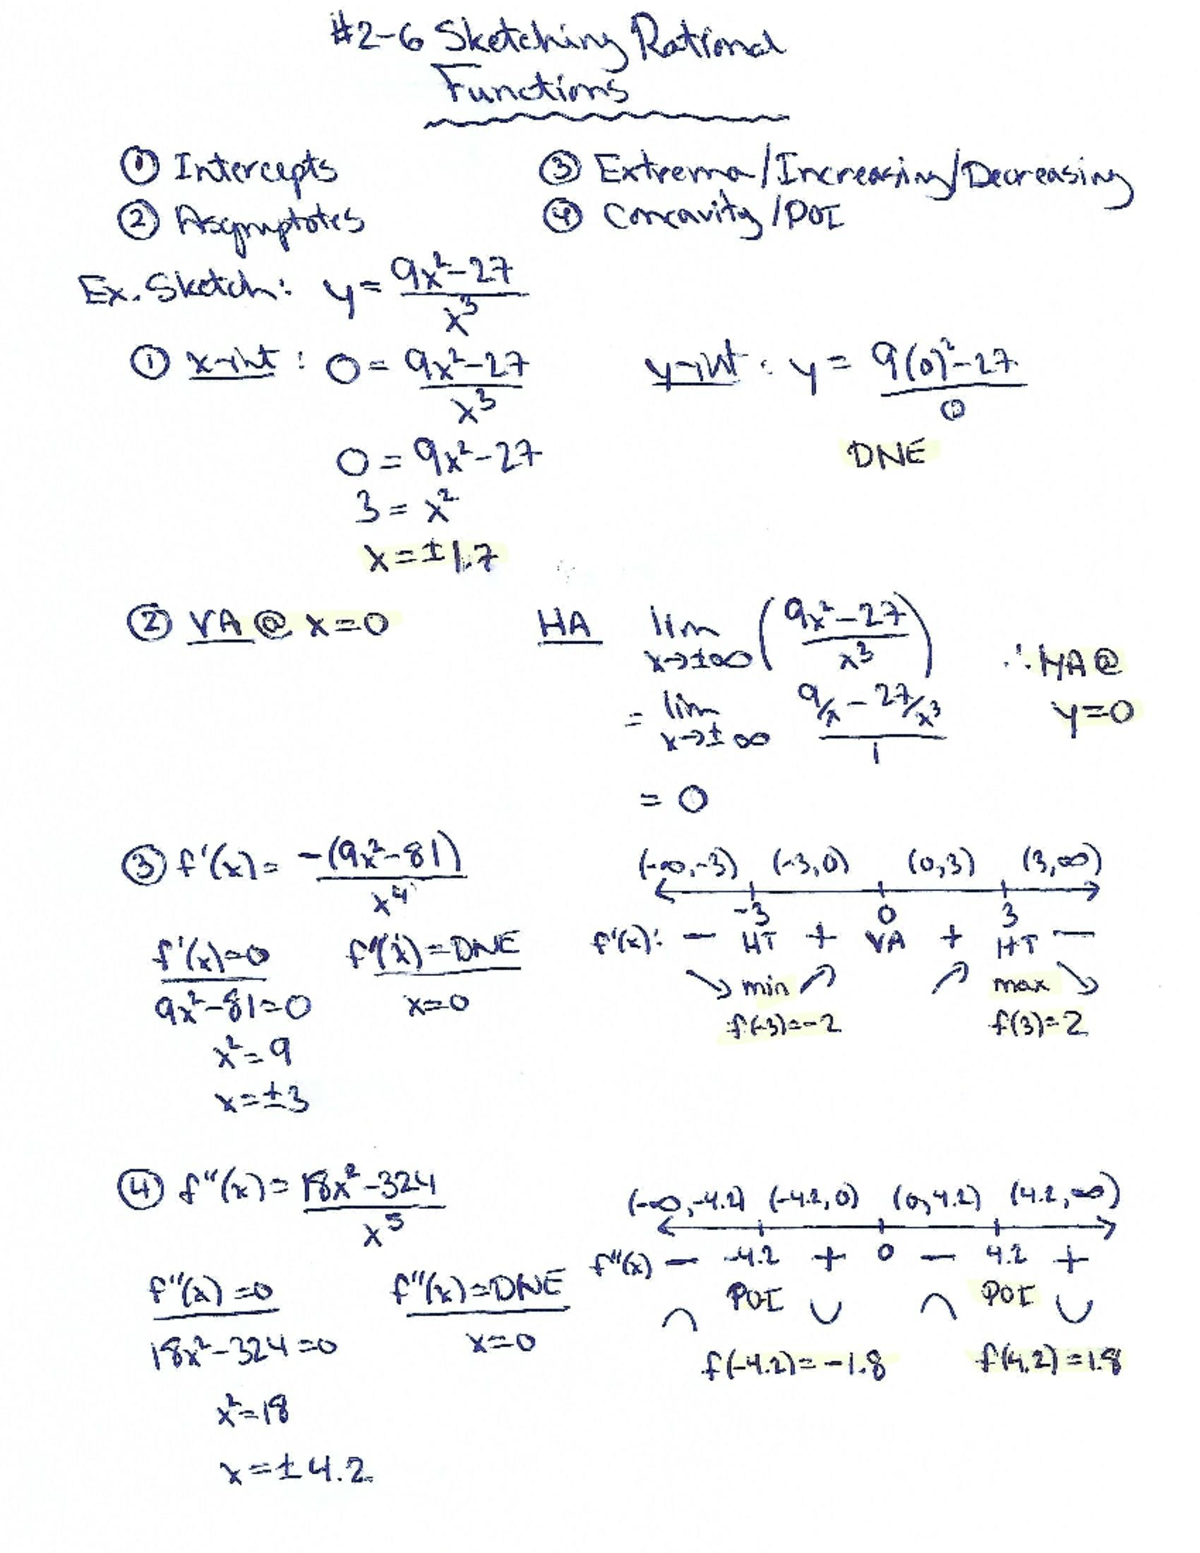 #2-6 Sketching Rational
Functions
① Intercepts
② Asymptotes
③ Extrema/Increasing/Decreasing
④ Concavity/POI
Ex. Sketch: y = (9x²-27)/x³
① x-int : 0 = (9x²-27)/x³
0 = 9x²-27
3 = x²
x = ±1.7
y-int : y = (9(0)²-27)/0
DNE
② VA @ x=0
HA lim x→±∞ ((9x²-27)/x³)
= lim x→±∞ (9/x - 27/x³)/1
= 0
∴ HA @
y=0
③ f'(x) = -(9x²-81)/x⁴
f'(x)=0
9x²-81=0
x²=9
x=±3
f'(x)=DNE
x=0
(-∞,-3) (-3,0) (0,3) (3,∞)
-3 0 3
f'(x): - HT + VA + HT -
↘ min ↗ ↗ max ↘
f(-3)=-2 f(3)=2
④ f"(x) = (18x²-324)/x⁵
f"(x)=0
18x²-324=0
x²=18
x=±4.2
f"(x)=DNE
x=0
(-∞,-4.2) (-4.2,0) (0,4.2) (4.2,∞)
f"(x) - -4.2 + 0 - 4.2 +
∩ POI ∪ ∩ POI ∪
f(-4.2)=-1.8 f(4.2)=1.8